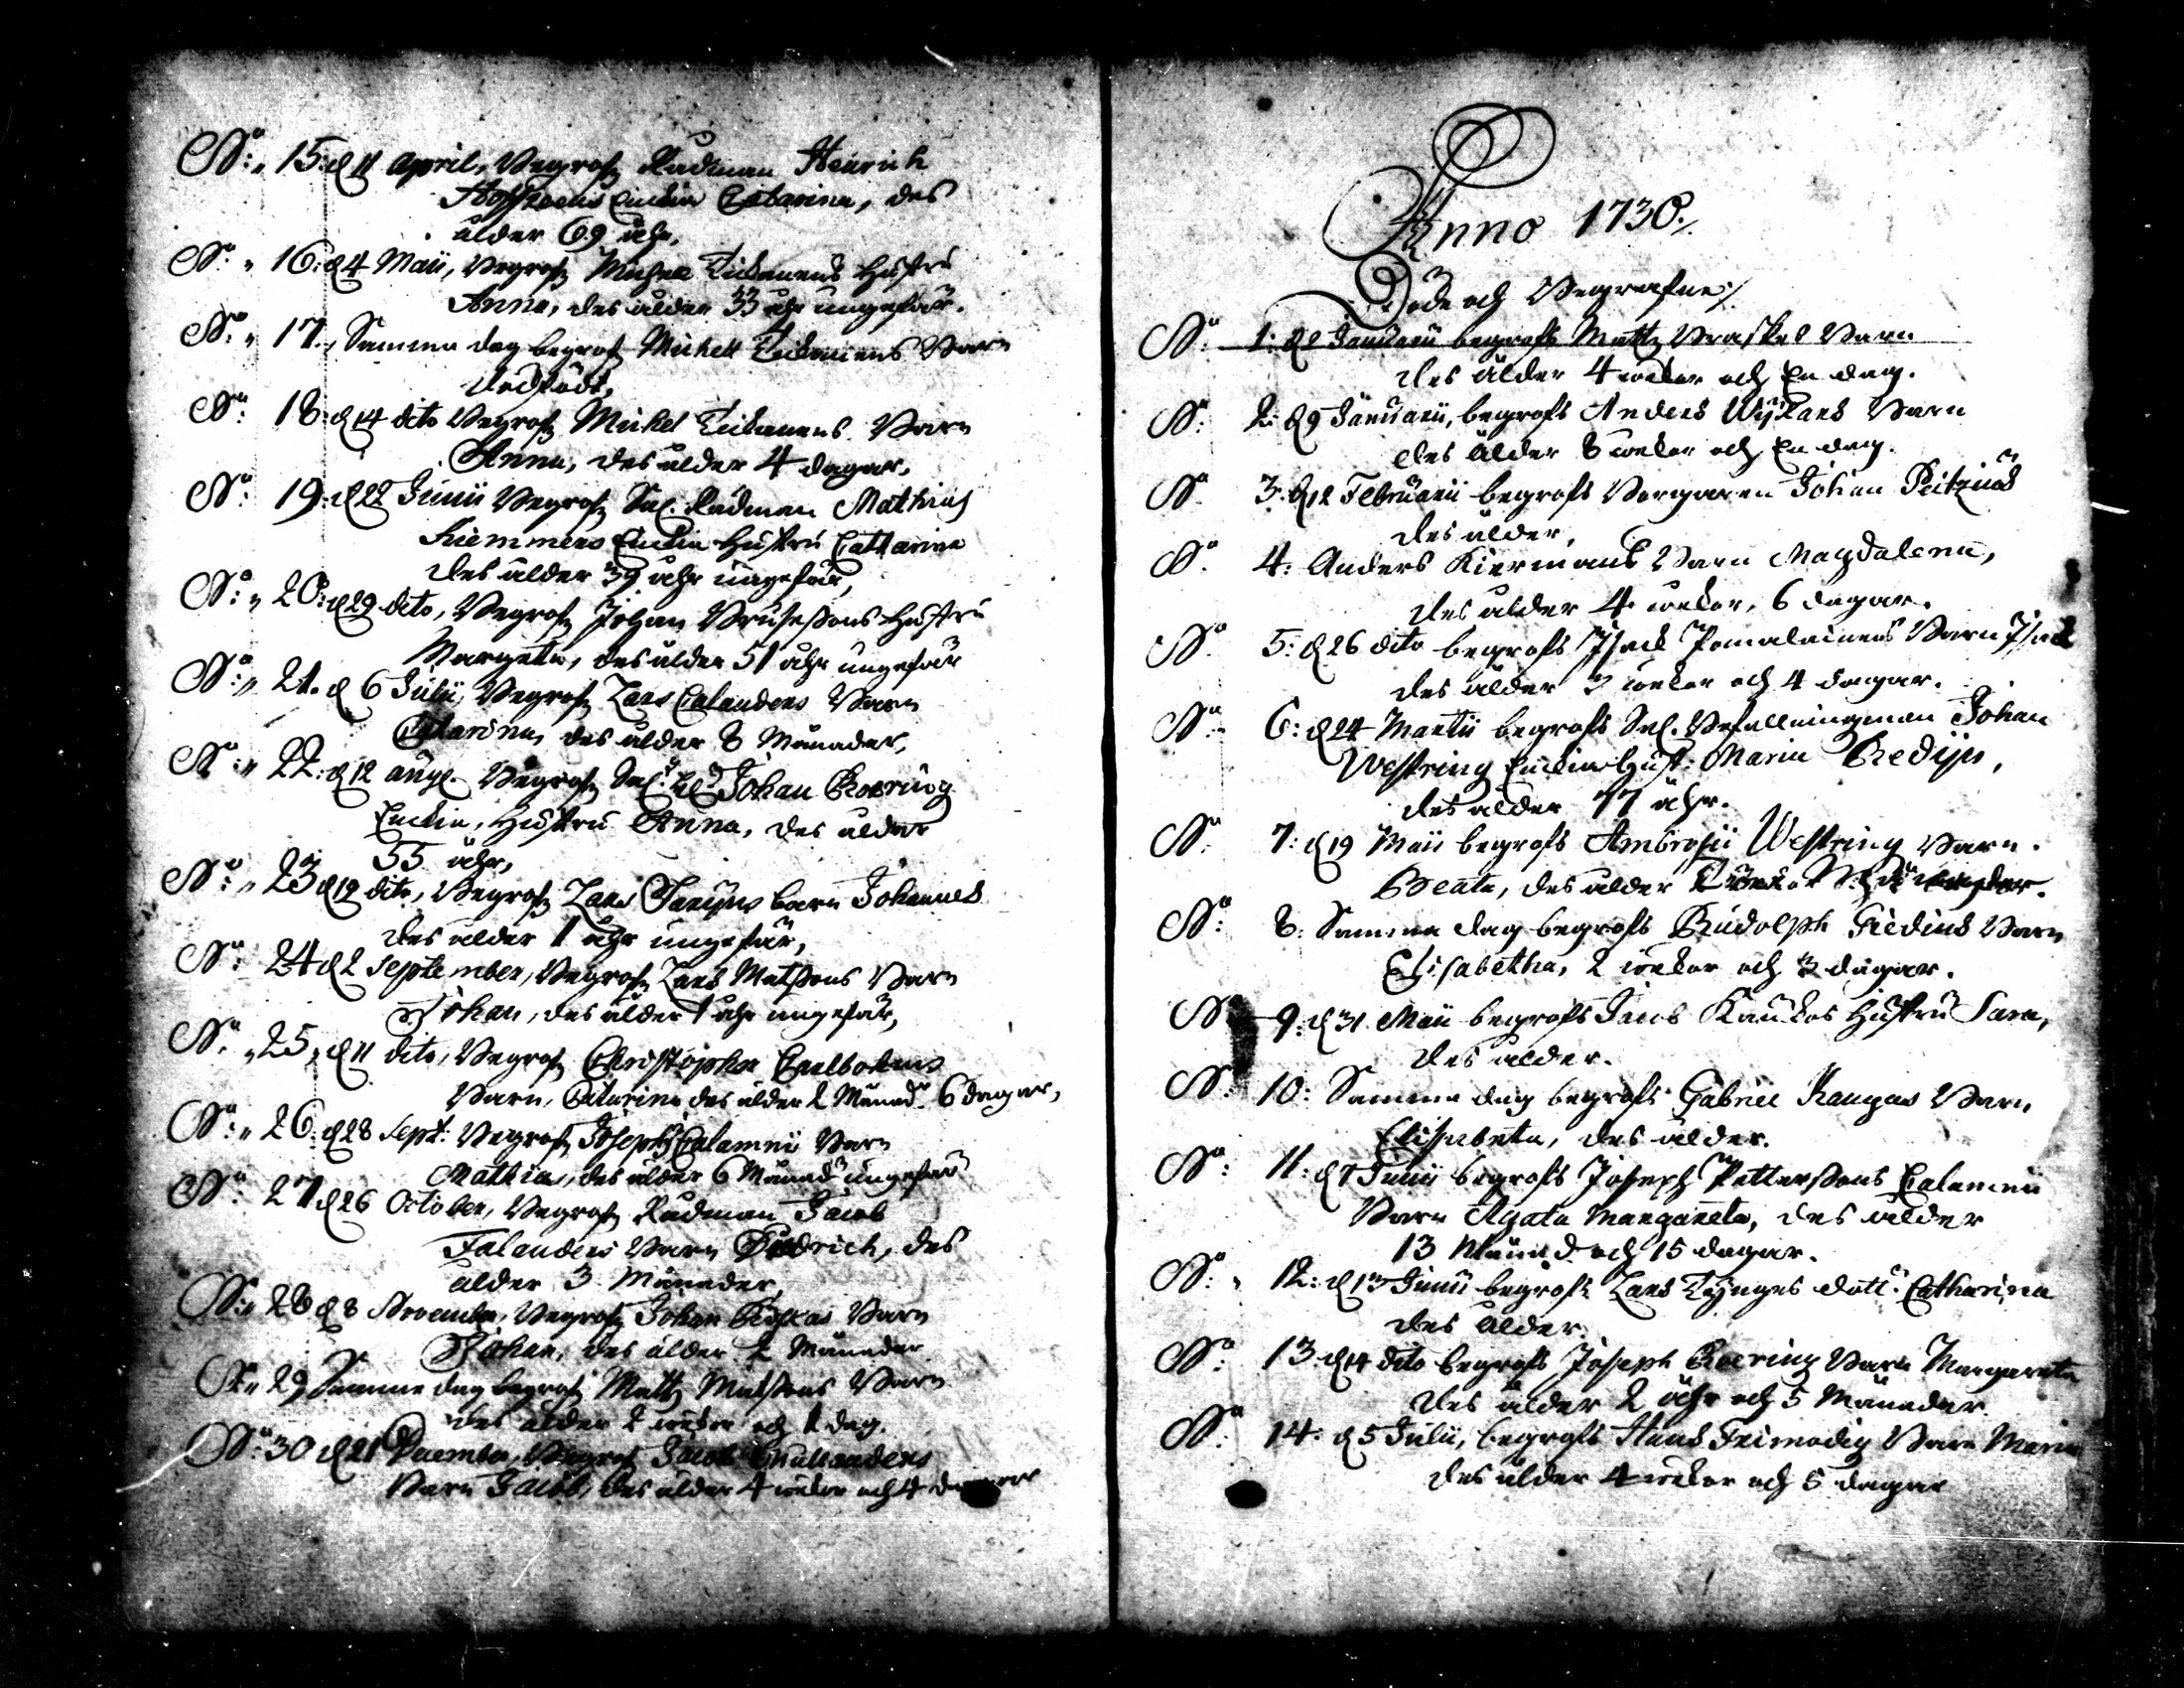 N:o 15. d 11 April, Begrofz Rådman Henrich
Enckia Catarina, des
ålder 69 åhr,
N:o 16: d 4 Maii, Begrofz Michell Tickanens Hustru
Anna, des ålder 33 åhr ungefär.
N:o 17, Samma dag begrofz Michell Tickanens Barn
dödfödt,
N:o 18: d 14 dito Begrofz Michel Tickanens Barn
Anna, des ålder 4 dagar,
N:o 19: d 22 Junii Begrofz Sal. Rådman Mathias
Kiemmers Enckia Hustru Catharina
des ålder 39 åhr ungefär,
N:o 20: d 29 dito, Begrofz Johan Hustru
Margeta, des ålder 51 åhr ungefär
N:o 21. d 6 Julii, Begrofz Lars Calanders Barn
Catarina, des ålder 8 Månader,
N:o 22: d 12 aug. Begrofz Sal. Johan Roering
Enckia, Hustru Anna, des ålder
55 åhr,
N:o 23 d 19 dito, Begrofz Lars barn Johannes
des ålder 1 åhr ungefär,
N:o 24 d 2 September, Begrofz Lars Matssons Barn
Johan, des ålder 1 åhr ungefär,
N:o 25, d 11 dito, Begrofz Christopher
Barn, Catarina des ålder 2 Månad. 6 dagar,
N:o 26: d 28 Sept. Begrofz Joseph Calamnii Barn
Mathias, des ålder 6 Månad ungefär
N:o 27 d 26 October, Begrofz Rådman Jacob
Falanders Barn Diedrich, des
ålder 3 Månader
N:o 28 d 8 November, Begrofz Johan Barn
Johan, des ålder 2 Månader
N:o 29 Samma dag begrofz Matz Matssons Barn
des ålder 2 weckor och 1 dag.
N:o 30 d 21 December, Begrofz Jacob
Barn Jacob, des ålder 4 weckor och 4 dagar
Anno 1730.
Döde och Begrafne
N:o 1: d 2 Januarii begrofs Mattz Braskes Barn
des ålder 4 weckor och En dag.
N:o 2: d 9 Januarii, begrofs Anders Barn
des ålder 8 weckor och En dag.
N:o 3: d 12 Februarii begrofs Borgaren Johan
des ålder,
N:o 4: Anders Kiermans Barn Magdalena,
des ålder 4 weckor, 6 dagar.
N:o 5: d 26 dito begrofs Isack Pomalainens Barn Isack
des ålder 3 weckor och 4 dagar.
N:o 6: d 24 Martii begrofs Sal. Befallningzman Johan
Westring Enckia Hust: Maria
des ålder 77 åhr.
N:o 7: d 19 Maii begrofs Ambrosii Westring Barn.
Beata, des ålder
N:o 8: Samma dag begrofs Rudolph Barn
Elisabetha, 2 weckor och 3 dagar.
N:o 9: d 31 Maii begrofs Jacob Kauckos Hustru Sara,
des ålder.
N:o 10: Samma dag begrofs Gabriel Kangas Barn
Elisabeta, des ålder.
N:o 11: d 7 Junii begrofs Joseph Petterssons Calamnii
Barn Agata Margareta, des ålder
13 Månad och 15 dagar.
N:o 12: d 13 Junii begrofs Lars dott: Catharina
des ålder.
N:o 13 d 14 dito begrofs Joseph Roering Barn Margareta
des ålder 2 åhr och 5 Månader.
N:o 14: d 5 Julii, begrofs Hans Frimodig Barn Maria
des ålder 4 weckor och 5 dagar